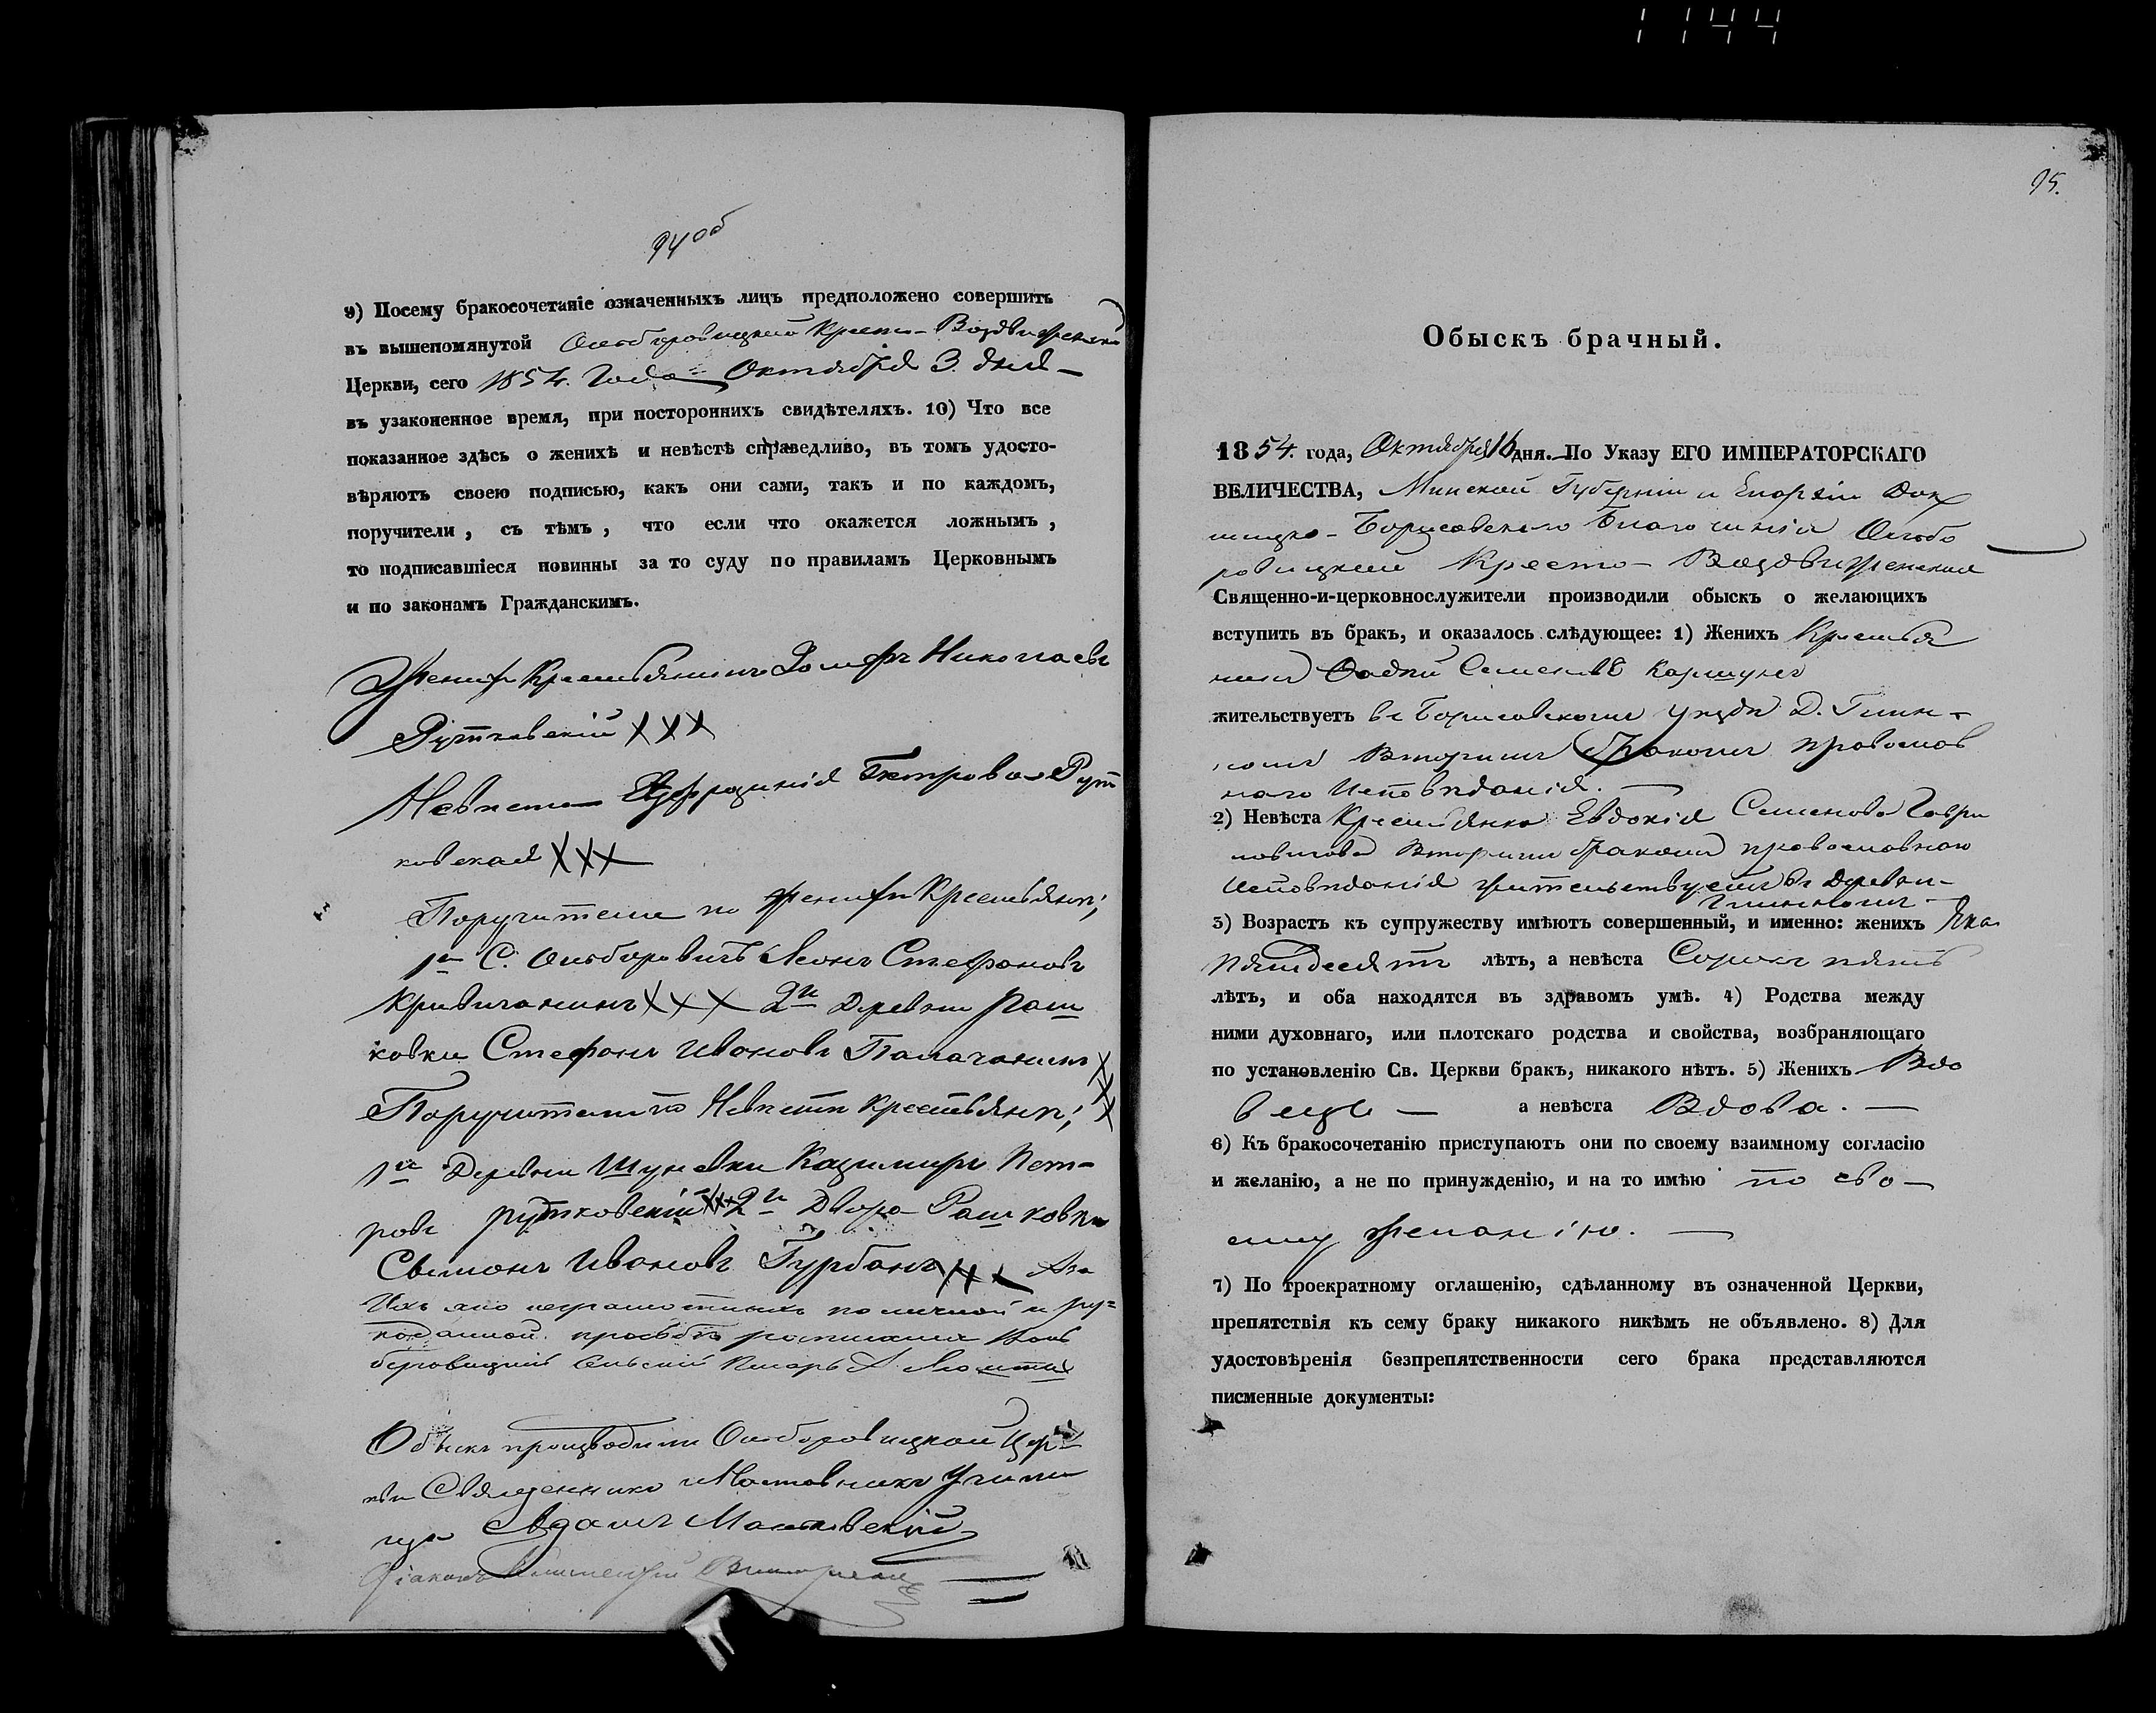 1144
94 об
9) Посему бракосочетаніе означенныхъ лицъ предположено совершить
въ вышепомянутой Ольборовицкой Кресто-Воздвиженской
Церкви, сего 1854. Года Октября 3. дня
въ узаконенное время, при постороннихъ свидѣтеляхъ. 10) Что все
показанное здѣсь о женихѣ и невѣстѣ справедливо, въ томъ удосто-
вѣряютъ своею подписью, какъ они сами, такъ и по каждомъ,
поручители, съ тѣмъ, что если что окажется ложнымъ,
то подписавшіеся повинны за то суду по правиламъ Церковнымъ
и по законамъ Гражданскимъ.
Женихъ Крестьянинъ Николаевъ
Рутковскій ХХХ
Невѣста Петрова Рут
ковская ХХХ
Поручители по женихѣ Крестьяне;
1й С. Ольборовичъ Леонъ Стефановъ
Кривичанинъ ХХХ 2й Деревни Раш
ковки Стефанъ Ивановъ Палачанинъ ХХХ
Поручители по Невѣстѣ Крестьяне;
1й Деревни Шуневки Казимиръ Пет-
ровъ Рутковскій ХХХ 2й Двора Рашковки
Сымонъ Ивановъ Гурбанъ ХХХ А за
Ихъ яко неграмотныхъ по личной и ру-
коданной прозьбѣ
Сельскій Писарь
Обыскъ производили Ольборовицкой Цер-
кви Священникъ Наставникъ Учили
ща Адамъ
Діаконъ
95.
Обыскъ брачный.
1854. года, Октября 16 дня. По Указу ЕГО ИМПЕРАТОРСКАГО
ВЕЛИЧЕСТВА, Минской Губерніи и Епархіи Док
шицко-Борисовскаго Благочинія Ольбо
ровицкой Кресто-Воздвиженской
Священно-и-церковнослужители производили обыскъ о желающихъ
вступить въ бракъ, и оказалось слѣдующее: 1) Женихъ Крестья
нинъ Фадѣй Семеновъ Каршунъ
жительствуетъ въ Борисовскомъ уѣздѣ Д. Глин-
номъ Вторымъ бракомъ православ
наго Исповѣданія.
2) Невѣста Крестьянка Евдокія Семенова Гаври
ловичова Вторымъ бракомъ православнаго
Исповѣданія жительствуетъ въ деревни-
Глинномъ
3) Возрастъ къ супружеству имѣютъ совершенный, и именно: женихъ Яко
пятдесятъ лѣтъ, а невѣста Сорокъ пять
лѣтъ, и оба находятся въ здравомъ умѣ. 4) Родства между
ними духовнаго, или плотскаго родства и свойства, возбраняющаго
по установленію Св. Церкви бракъ, никакого нѣтъ. 5) Женихъ Вдо
вецъ а невѣста Вдова.
6) Къ бракосочетанію приступаютъ они по своему взаимному согласію
и желанію, а не по принужденію, и на то имѣю по сво-
ему желанію.
7) По троекратному оглашенію, сдѣланному въ означенной Церкви,
препятствія къ сему браку никакого никѣмъ не объявлено. 8) Для
удостовѣренія безпрепятственности сего брака представляются
писменные документы: